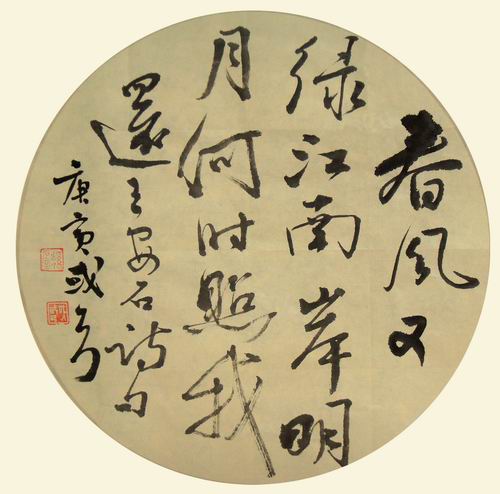 春风又
绿江南岸明
月何时照我
還王安石诗句
庚寅